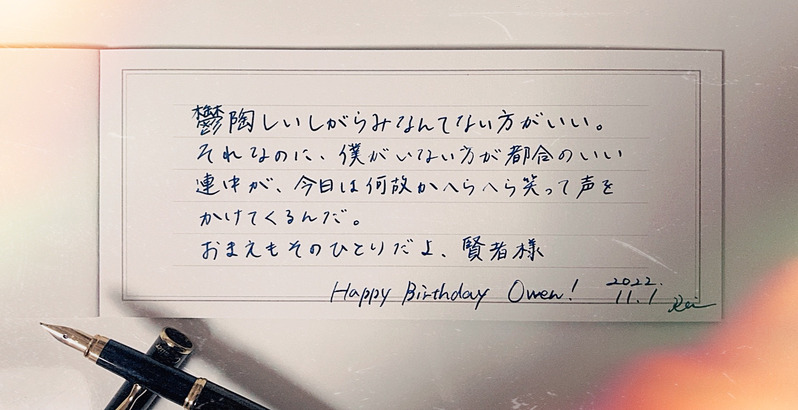 鬱陶しいしがらみなんてない方がいい。
それなのに、僕がいない方が都合のいい
連中が、今日は何故かへらへら笑って声を
かけてくるんだ。
おまえもそのひとりだよ、賢者様
Happy Birthday Owen!
2022.
11.1
Rei